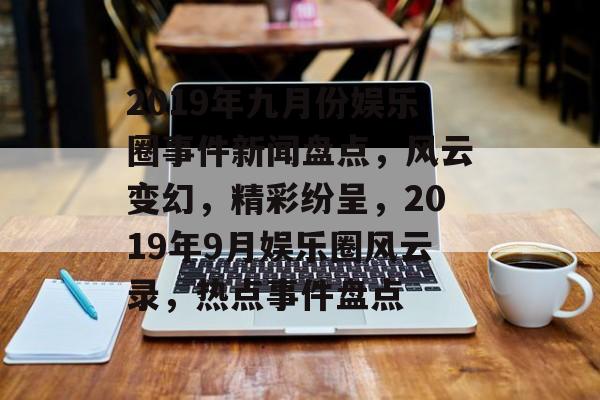 2019年九月份娱乐
圈事件新闻盘点，风云
变幻，精彩纷呈，20
19年9月娱乐圈风云
录，热点事件盘点